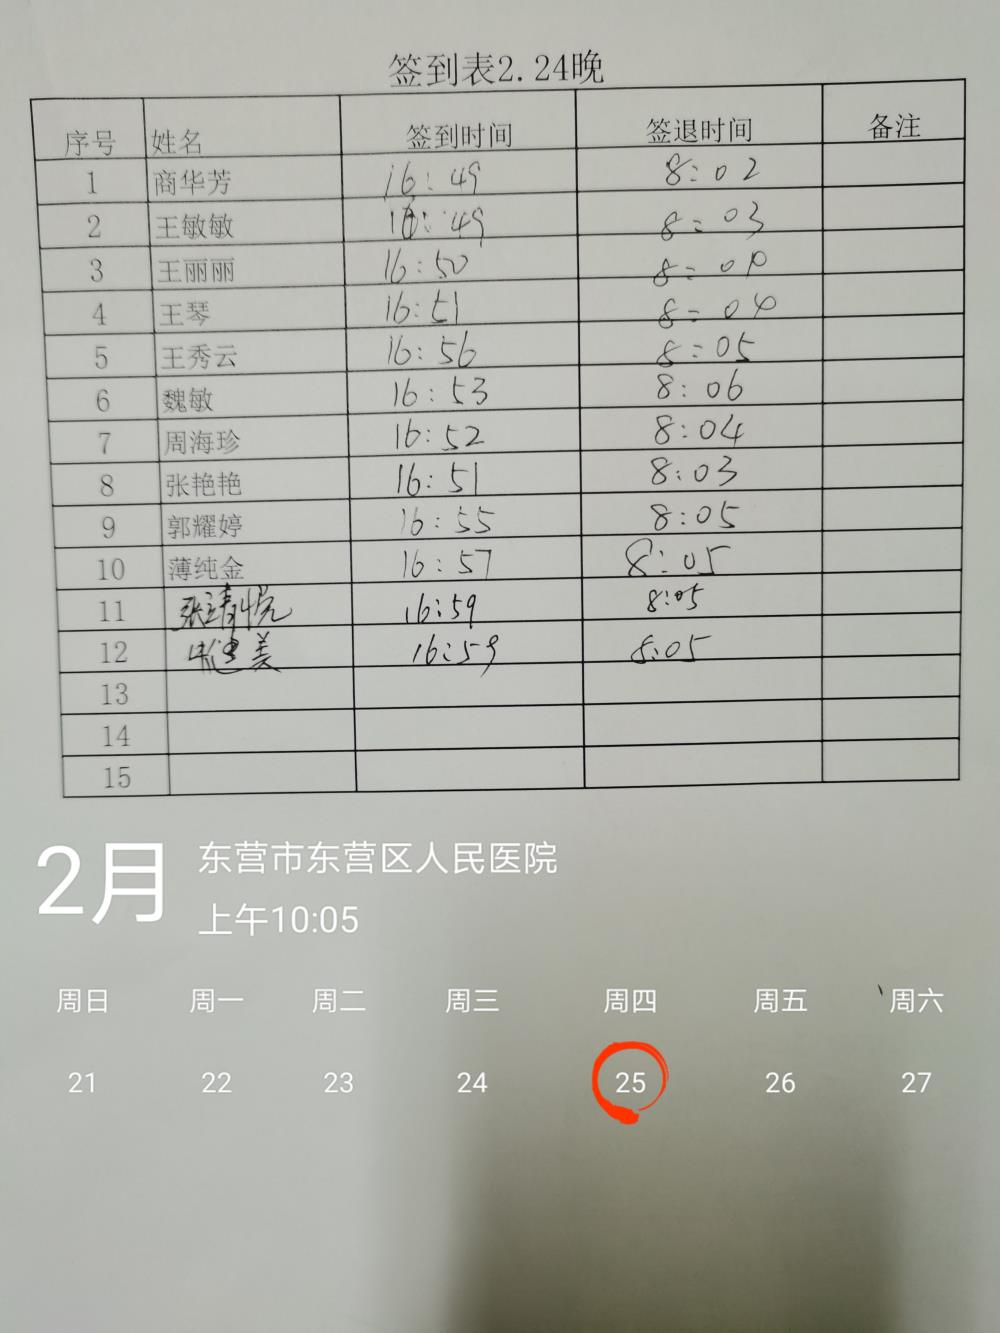 签到表2.24晚
序号 姓名 签到时间 签退时间 备注
1 商华芳 16:49 8:02
2 王敏敏 16:49 8:03
3 王丽丽 16:50 8:04
4 王琴 16:51 8:04
5 王秀云 16:56 8:05
6 魏敏 16:53 8:06
7 周海珍 16:52 8:04
8 张艳艳 16:51 8:03
9 郭耀婷 16:55 8:05
10 薄纯金 16:57 8:05
11 张靖悦 16:59 8:05
12 16:59 8:05
13
14
15
2月
东营市东营区人民医院
上午10:05
周日 周一 周二 周三 周四 周五 周六
21 22 23 24 25 26 27